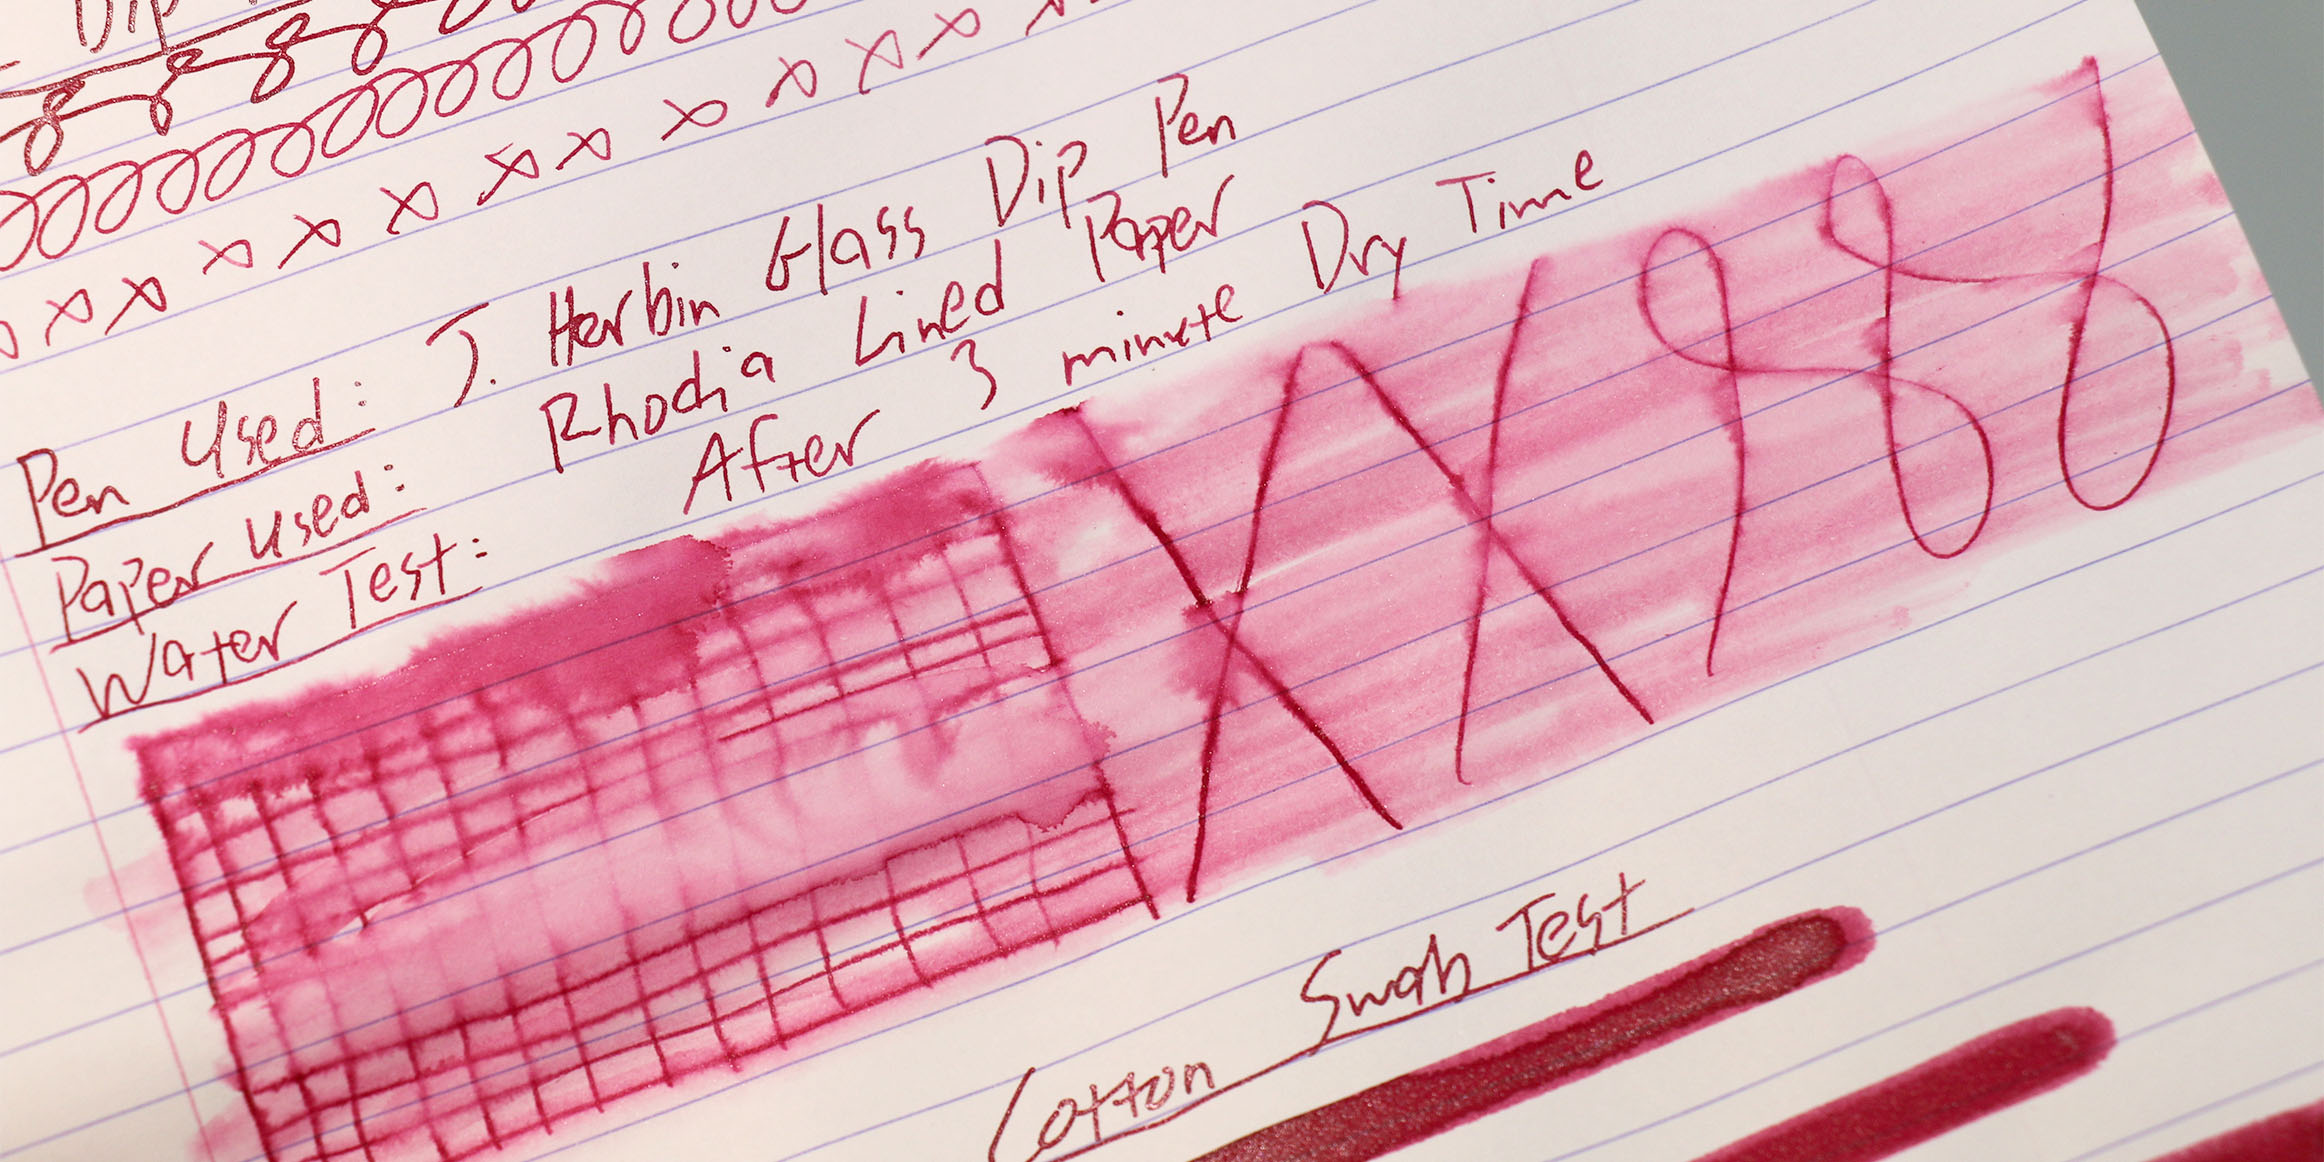 Dip
Pen Used: J. Herbin Glass Dip Pen
Paper Used: Rhodia Lined Paper
Water Test: After 3 minute Dry Time
Cotton Swab Test